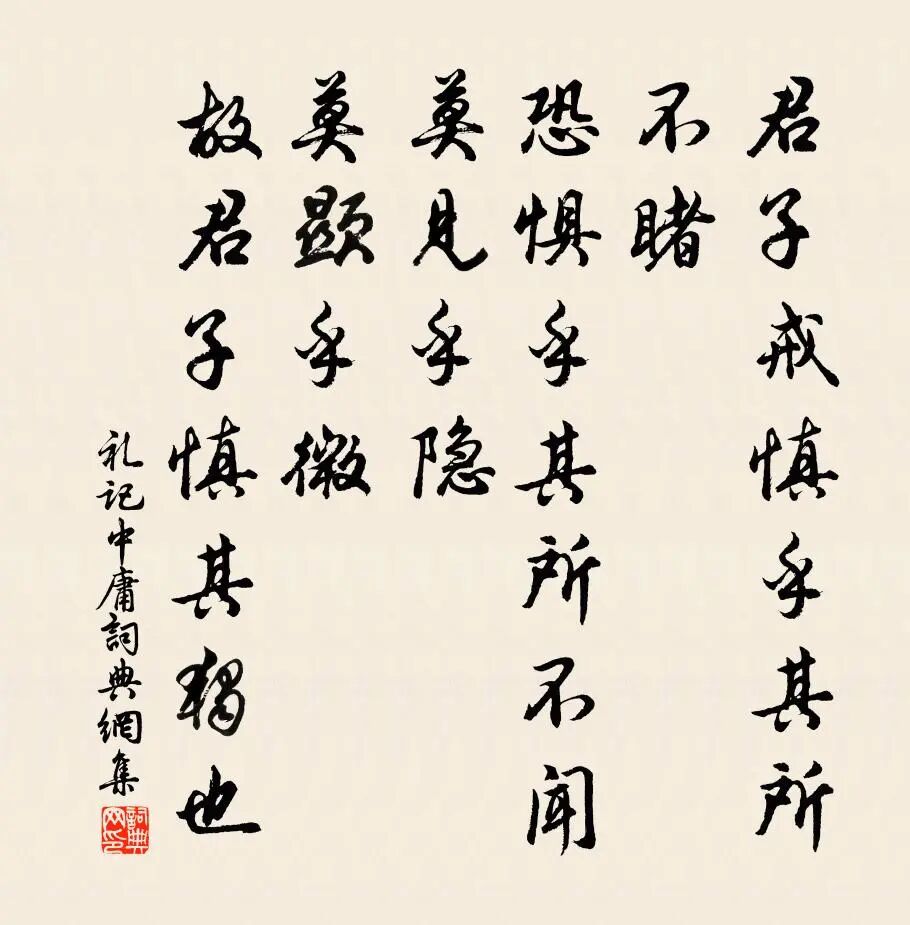 君子戒慎乎其所
不睹
恐惧乎其所不闻
莫见乎隐
莫顯乎微
故君子慎其独也
礼记中庸詞典網集
詞典网印